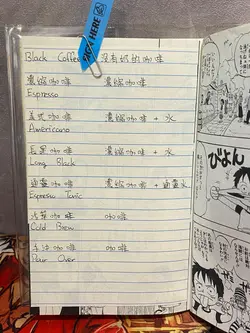 SIGN HERE
Black Coffee 沒有奶的咖啡
濃縮咖啡 濃縮咖啡
Espresso
美式咖啡 濃縮咖啡 + 水
Americano
長黑咖啡 濃縮咖啡 + 水
Long Black
通寧咖啡 濃縮咖啡 + 通寧水
Espresso Tonic
冷萃咖啡 咖啡
Cold Brew
手沖咖啡 咖啡
Pour Over
びよん